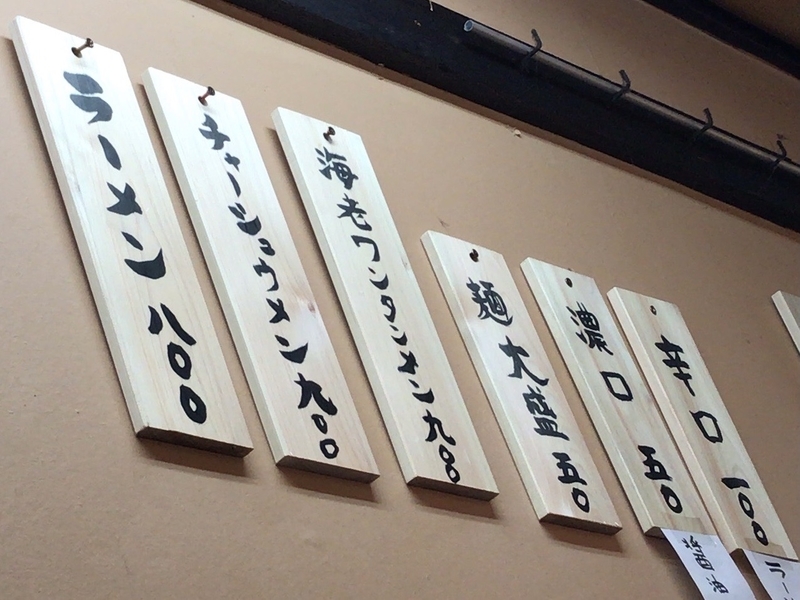 ラーメン 八〇〇
チャーシュウメン 九〇〇
海老ワンタンメン 九〇〇
麺大盛 五〇
濃口 五〇
辛口 一〇〇
醤油
ラー